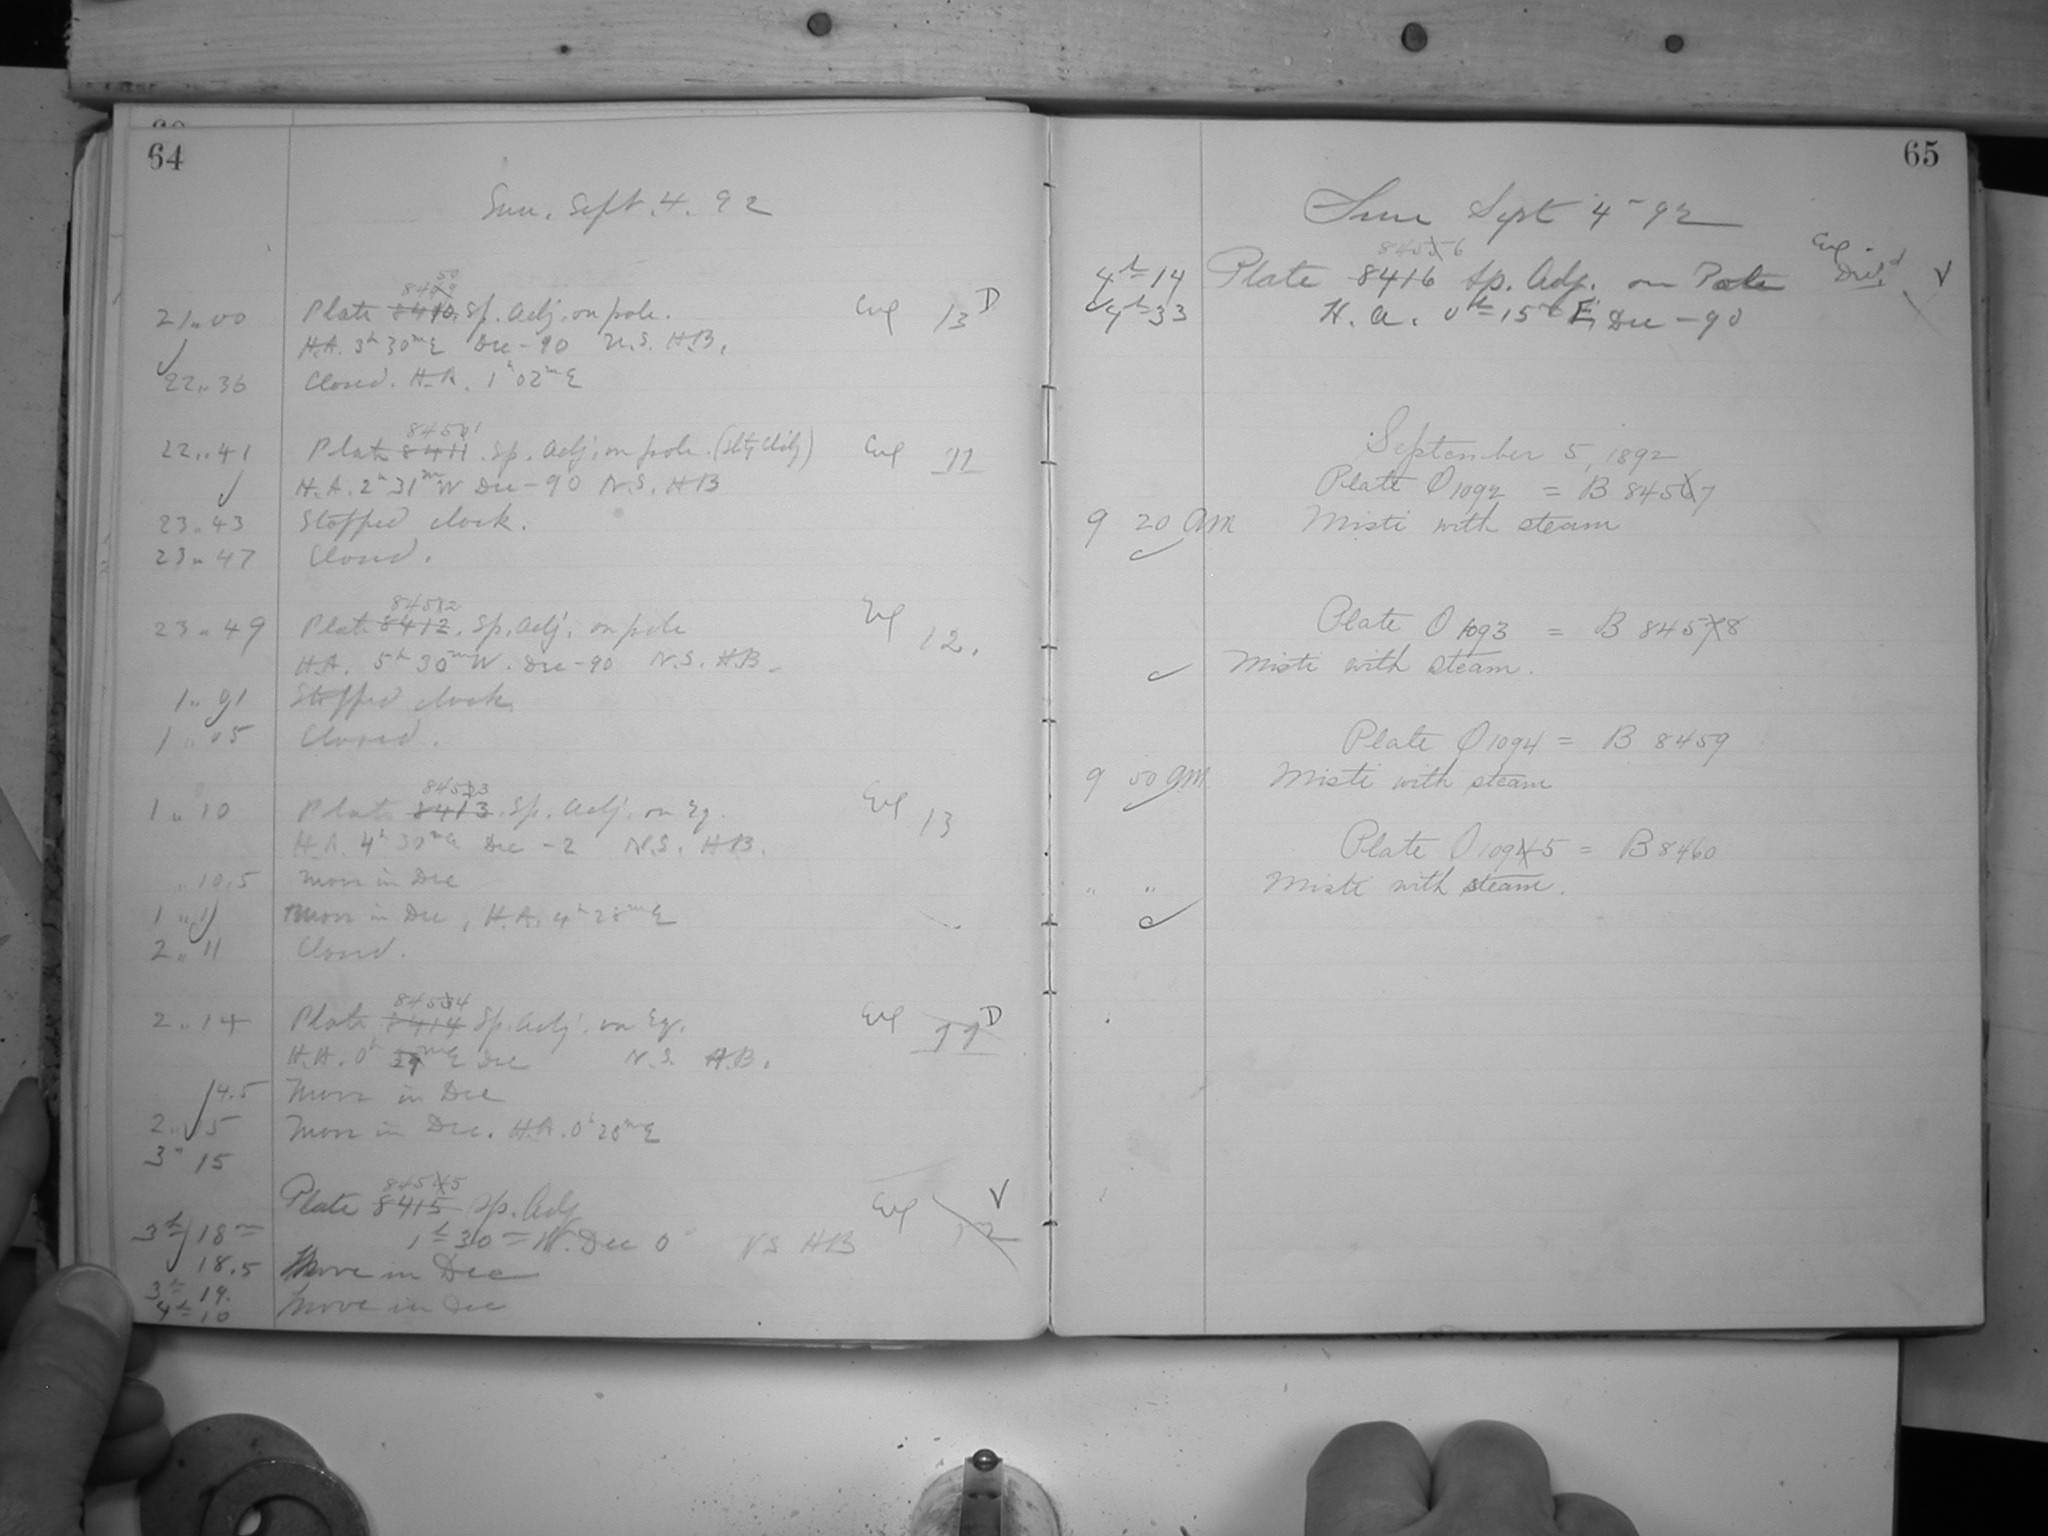 64
Sun. Sept. 4. 92
8450
21 00 Plate 8410. Sp. Adj. on pole. Eve 13 D
H.A. 3h 30m E Dec -90 N.S. H.B.
22 36 Closed. H.A. 1h 02m E
8451
22 41 Plate 8411. Sp. Adj. on pole. Eve 11
H.A. 2h 31m W Dec -90 N.S. H.B
23 43 Stopped clock.
23 47 Closed.
8452
23 49 Plate 8412. Sp. Adj. on pole Eve 12.
H.A. 5h 30m W. Dec -90 N.S. H.B.
1 01 Stopped clock
1 05 Closed.
8453
1 10 Plate 8413. Sp. Adj. on Eq. Eve 13
H.A. 4h 30m E Dec -2 N.S. H.B.
10.5 Move in Dec
1 11 Move in Dec, H.A. 4h 28m E
2 11 Closed.
8454
2 14 Plate 8414 Sp. Adj. on Eq. Eve D
H.A. 0h m E Dec N.S. H.B.
14.5 Move in Dec
2 15 Move in Dec. H.A. 0h 20m E
3 15
8455
Plate 8415 Sp. Adj Eve 12 V
3h 18m 1h 30m W. Dec 0 NS HB
18.5 Move in Dec
3h 19. Move in Dec
4h 10
65
Sun Sept 4 - 92
8456
4h 14 Plate 8416 Sp. Adj. on Pole Eve V
4h 33 H.A. 0h 15m E, Dec -90
September 5, 1892
Plate O 1092 = B 8457
9 20 am Misti with steam
Plate O 1093 = B 8458
Misti with steam.
Plate O 1094 = B 8459
9 50 am Misti with steam
Plate O 1095 = B 8460
" " Misti with steam.